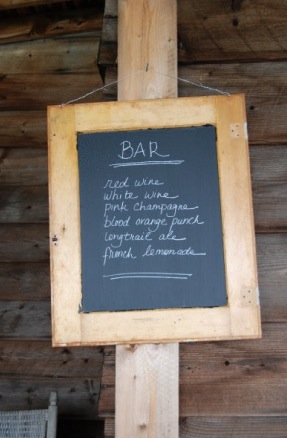 BAR
red wine
white wine
pink champagne
blood orange punch
longtrail ale
french lemonade